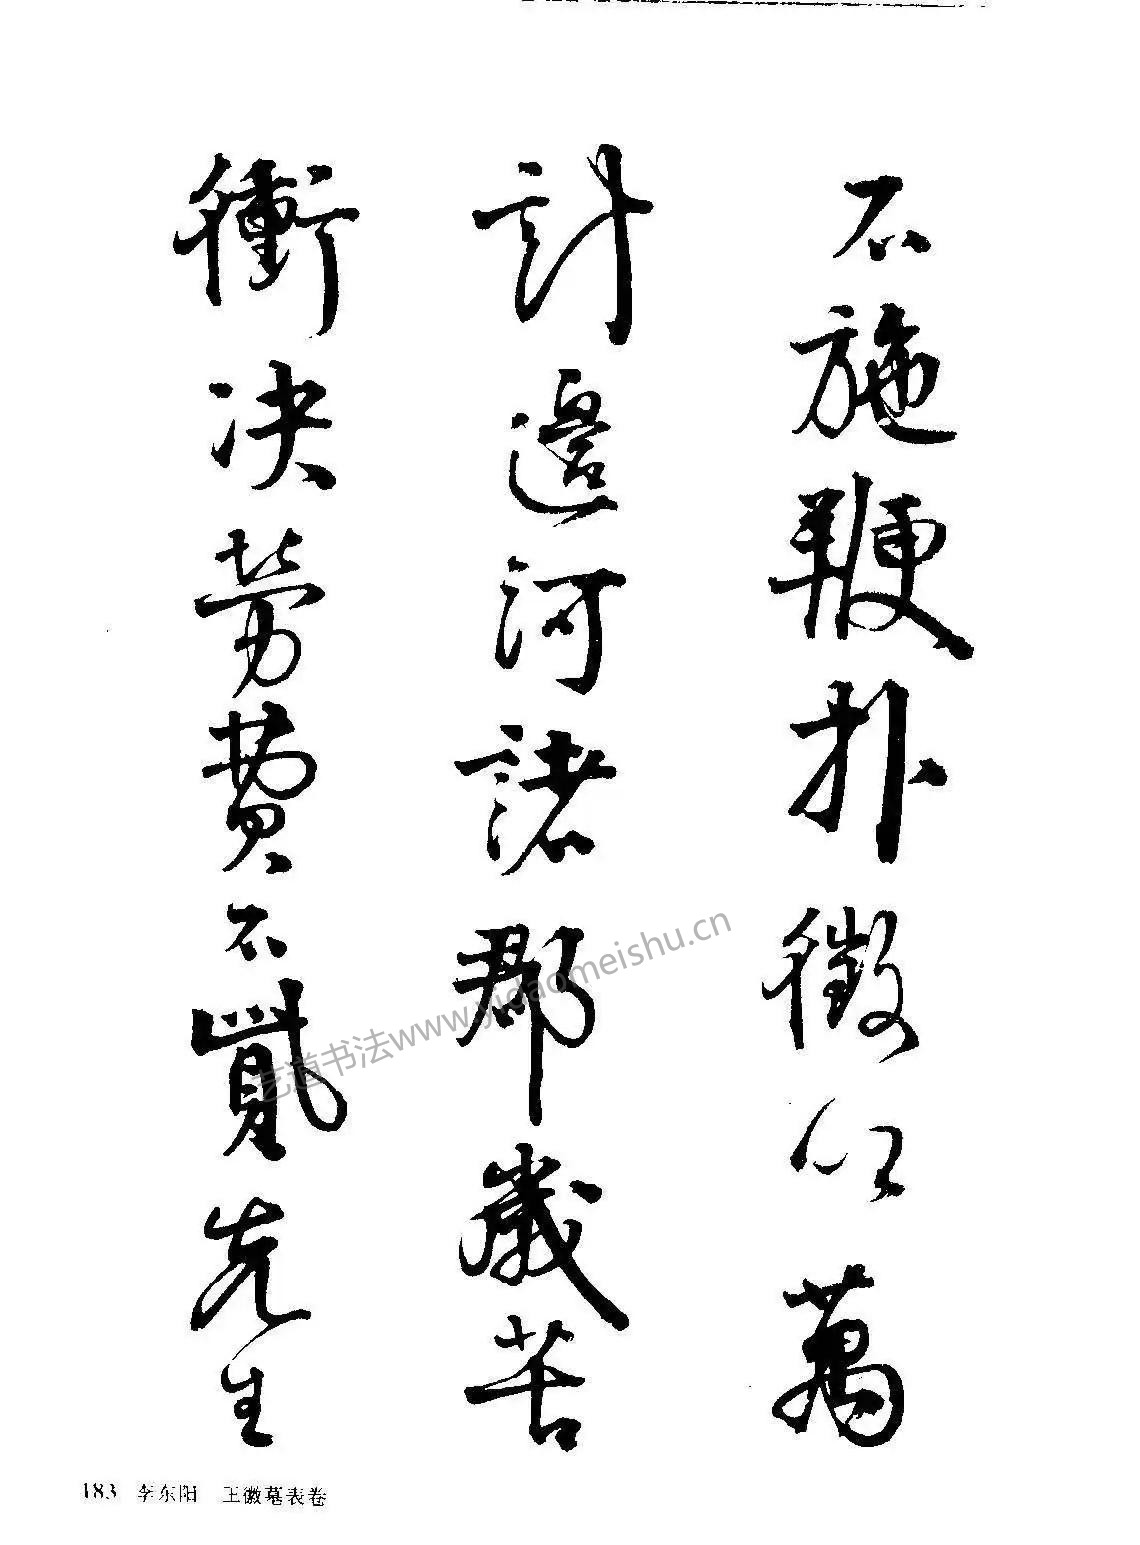 不施鞭扑徵以萬
計邊河諸郡歲苦
衝决勞費不貲先生
艺道书法www.yidaomeishu.cn
183 李东阳 王徽墓表卷